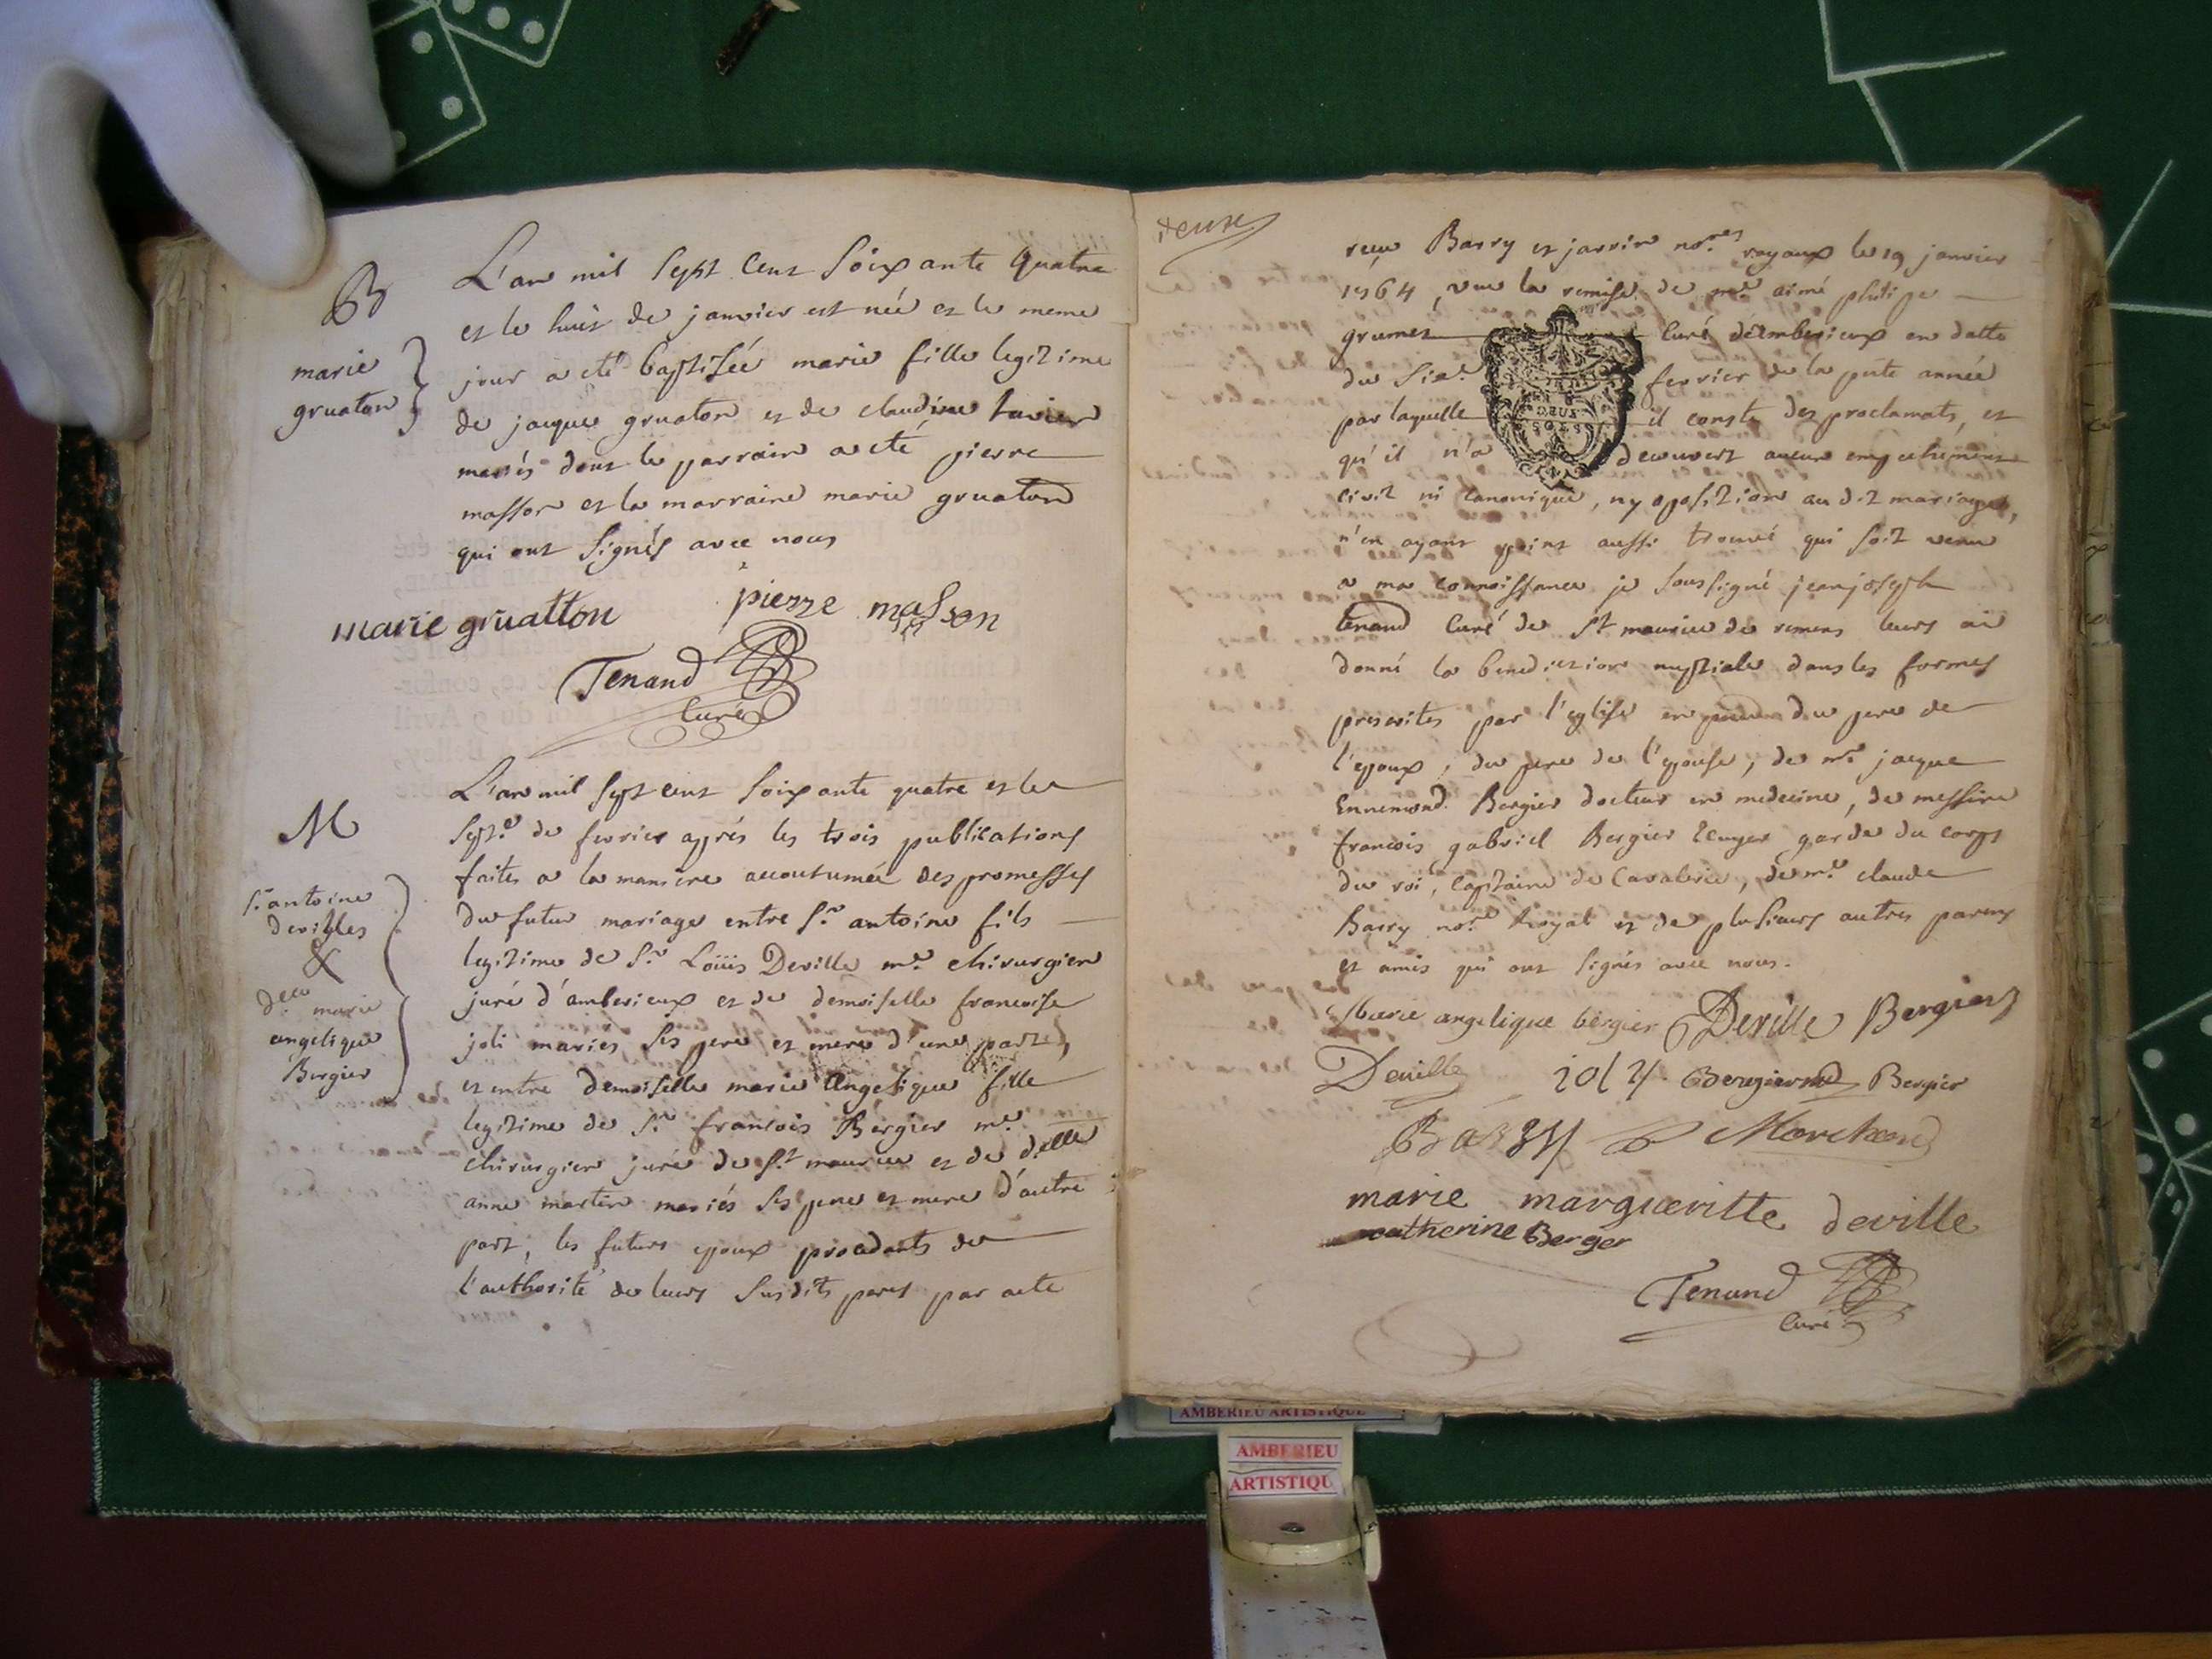 B
marie
gruaton
L'an mil sept cent soixante quatre
et le huit de janvier est née et le meme
jour a eté baptisée marie fille legitime
de jacque gruaton et de claudine
mariés dont le parrain a eté pierre
masson et la marraine marie gruaton
qui ont signés avec nous
marie gruatton pierre masson
Tenand
Curé
M
Sr antoine
devilles
&
Dlle marie
angelique
Bergier
L'an mil sept cent soixante quatre et le
sept.e de fevrier aprés les trois publications
faites a la maniere accoutumée des promesses
du futur mariage entre Sr antoine fils
legitime de Sr Loüis Deville me chirurgien
juré d'amberieux et de demoiselle francoise
joli mariés ses pere et mere d'une part,
et entre demoiselle marie angelique fille
legitime de Sr francois Bergier me
chirurgien juré de St maurice et de delle
anne martin mariés ses pere et mere d'autre
part, les futurs epoux procedants de
l'authorité de leurs susdits peres par acte
deuxe
reçu Barry et jarrin nores royaux le 19 janvier
1764, vue la remise de mre aimé philipe
grumet curé d'Amberieux en datte
du fevrier de la pnte année
par laquelle il conste des proclamats, et
qu'il n'a decouvert aucun empechement
civil ni canonique, ny oposition au dit mariage,
n'en ayant point aussi trouvé qui soit venu
a ma connoissance je soussigné jean joseph
tenand curé de St maurice de remens leurs ai
donné la benediction nuptiale dans les formes
prescrites par l'eglise en du pere de
l'epoux, du pere de l'epouse, de mr jacque
Ennemond Bergier docteur en medecine, de messire
francois gabriel Bergier Ecuyer garde du corps
du roi, capitaine de cavalerie, de me claude
Barry nore Royal et de plusieurs autres parens
et amis qui ont signés avec nous.
Marie angelique bergier Deville Bergier
Deville joly Bergier md Bergier
Barry Marchand
marie margueritte deville
catherine Berger
Tenand
Curé
AMBERIEU ARTISTIQUE
AMBERIEU
ARTISTIQU